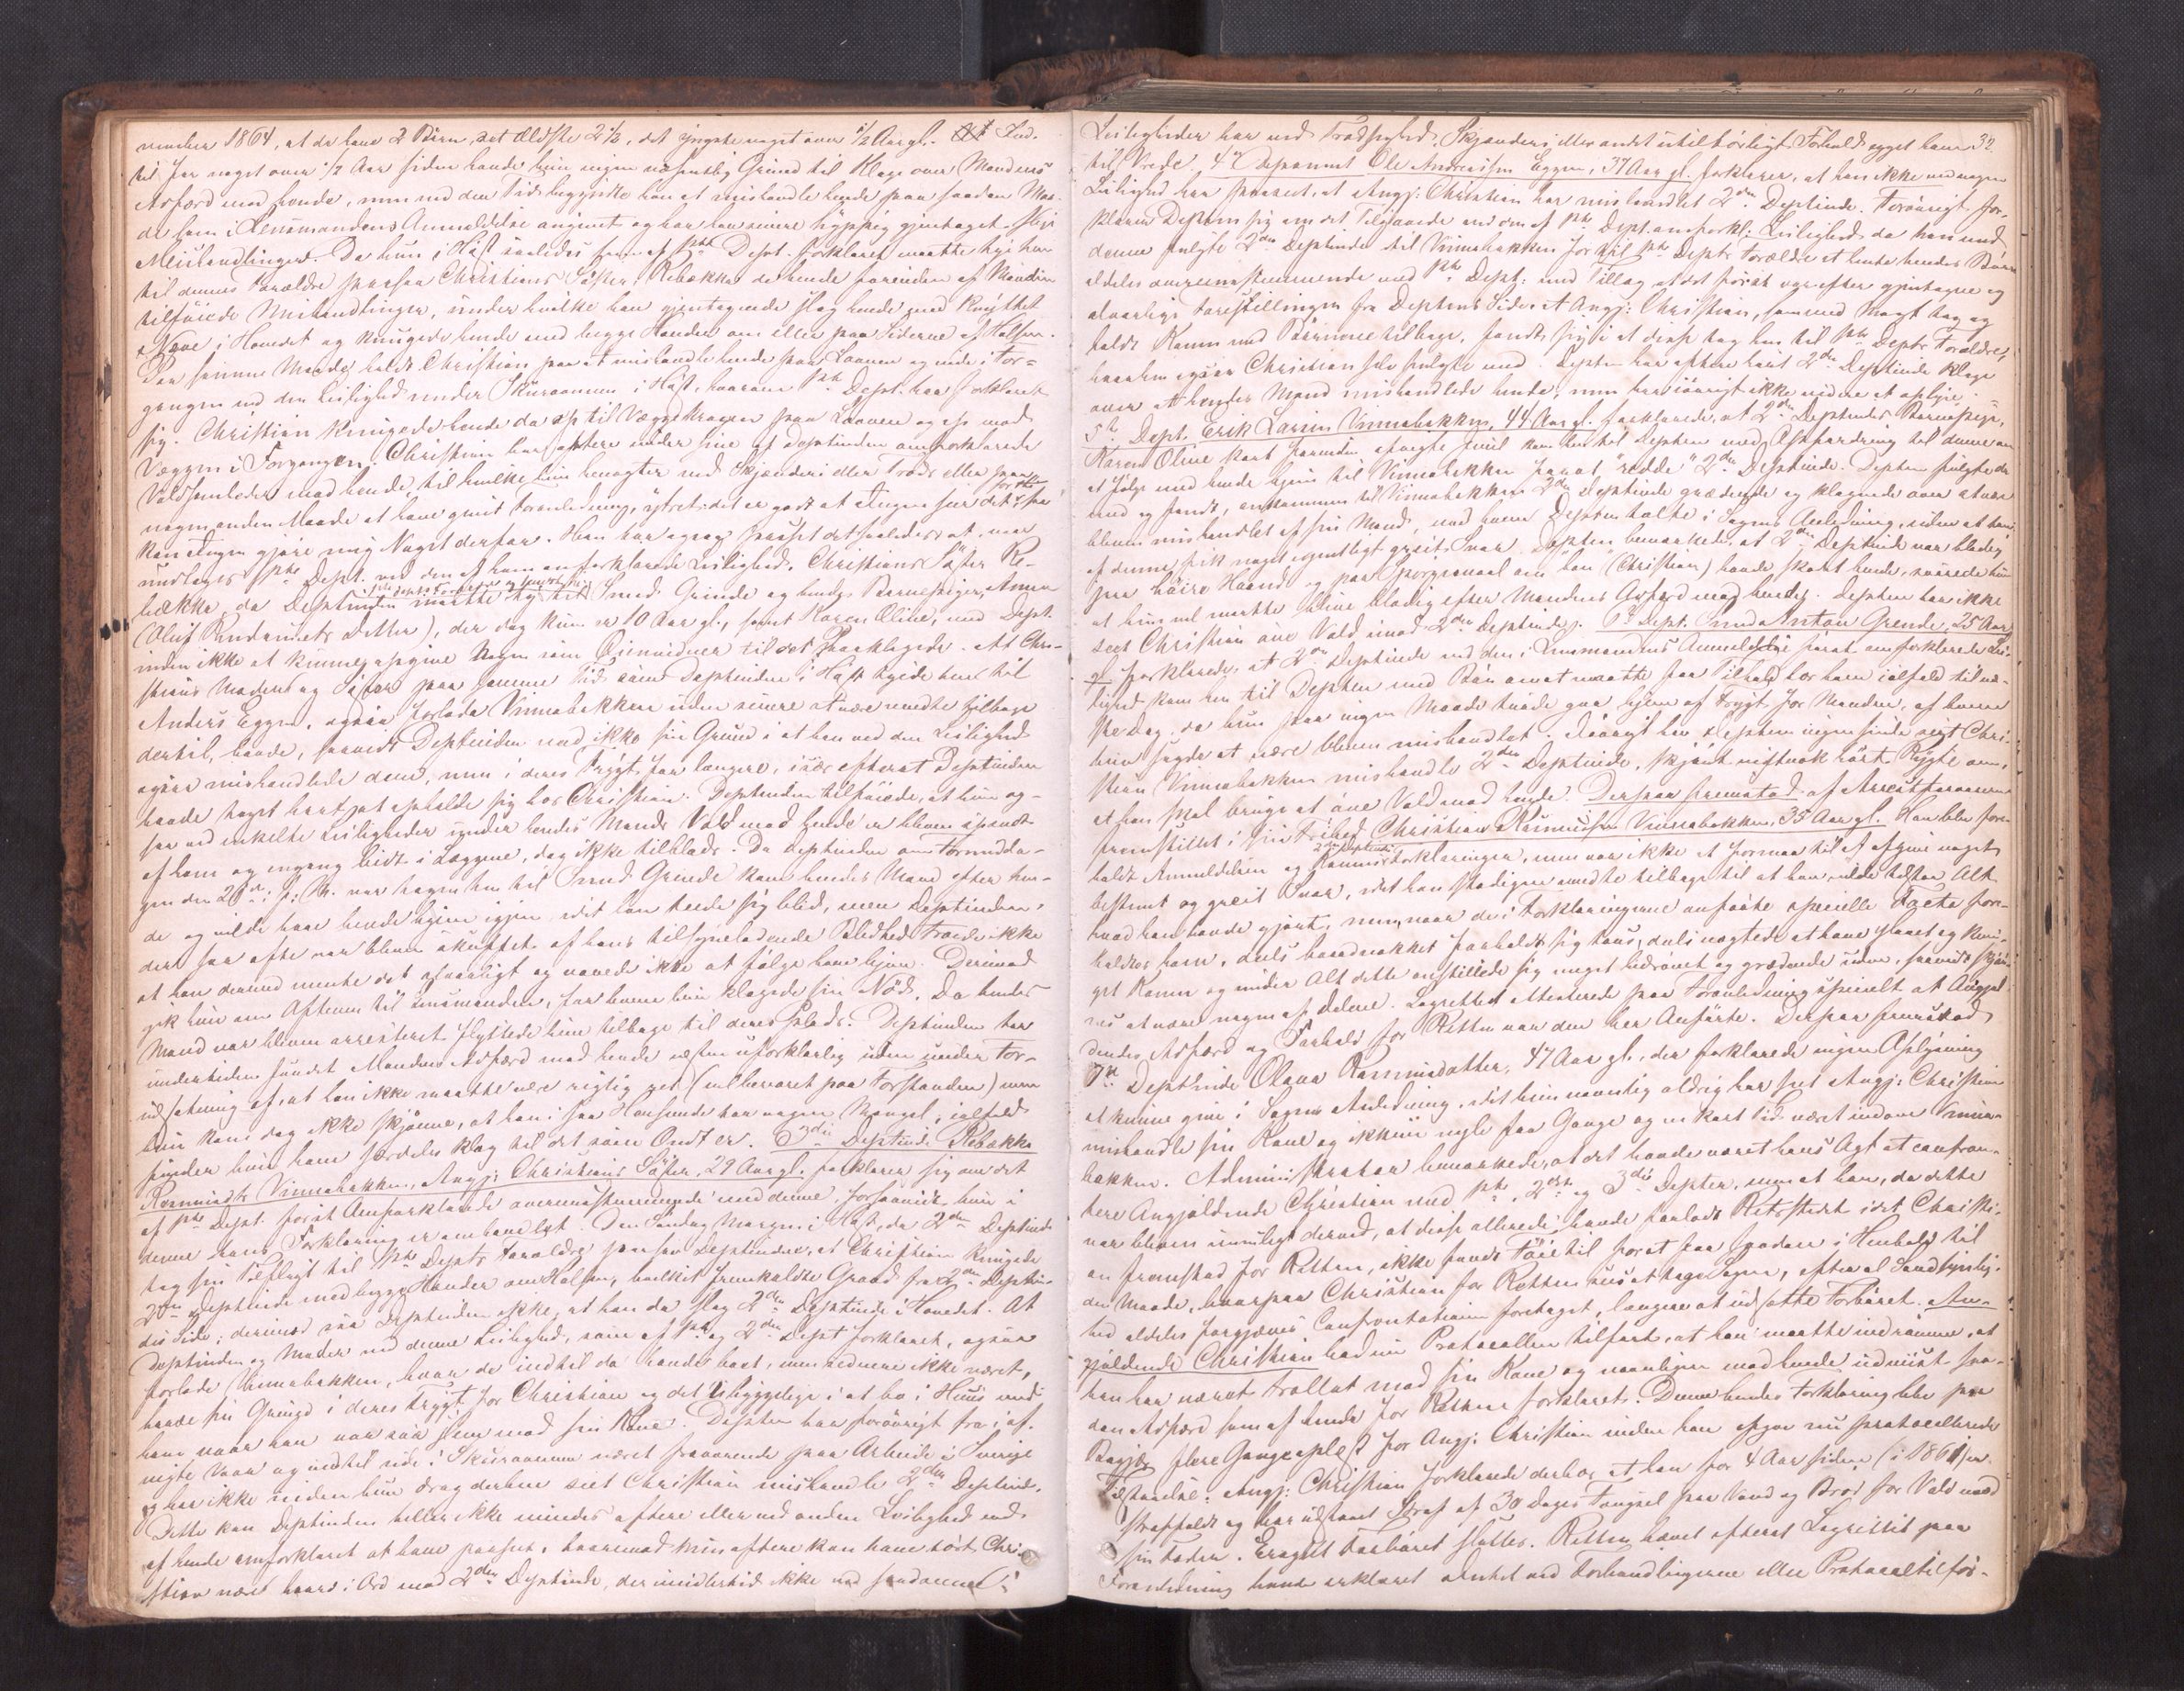 vember 1864, at de have 2 Børn, det Ældste 2½, det yngste noget over ½ Aar gl. Ind-
til for noget over ½ Aar siden havde hun ingen væsentlig Grund til Klage over Mandens
Adfærd mod hende, men ved den Tid begyndte han at mishandle hende paa saadan Maa-
de som i Lensmandens Anmeldelse angivet og har han senere hyppig gjentaget slige
Mishandlinger. Da hun i Høst saaledes som af 1ste Dept. forklaret maatte ty hen
til dennes Forældre paasaa Christians Søster, Rebækka de hende forinden af Manden
tilføiede Mishandlinger, under hvilke han gjentagende slog hende med knyttet
Næve i Hovedet og knugede hende med begge Hænder om eller paa Siderne af Halsen.
Paa samme Maade holdt Christian paa at mishandle hende paa Laaven og ude i For-
gangen ved den Leilighed under Skuraannen i Høst, hvorom 1ste Dept. har forklaret
sig. Christian knugede hende da op til Væggekragen paa Laaven og op mod
Væggen i Forgangen. Christian har oftere under sine af Deptinden omforklarede
Voldsomheder mod hende, til hvilke hun benægter ved Skjænderi eller Trods eller paa
nogen anden Maade at have givet Foranledning, ytret: det er godt at Ingen seer det, for saa
kan Ingen gjøre mig Noget derfor. Han har ogsaa passet det saaledes at, naar
undtages 1ste Dept. ved den af ham omforklarede Leilighed, Christians Søster Re-
bækka, da Deptinden maatte ty til Smed Grinde og hendes Barnepiger, Anne
(Oluf Rendemets Datter), der dog kun er 10 Aar gl., samt Karen Oline, ved Dept.
inden ikke at kunne opgive Nogen som Øienvidner til det Paaklagede. At Chri-
stians Moder og Søster paa samme Tid som Deptinden i Høst tyede hen til
Anders Eggen, ogsaa forlode Vinnabakken uden senere at være vendte tilbage
dertil, havde, saavidt Deptinden ved, ikke sin Grund i at han ved den Leilighed
ogsaa mishandlede dem, men i deres Frygt for længere, især efterat Deptinden
havde taget bort, at opholde sig hos Christian. Deptinden tilføiede, at hun og-
saa ved enkelte Leiligheder under hendes Mands Vold mod hende er bleven spændt
af ham og engang bidt i Læggene, dog ikke tilblods. Da Deptinden om Formidda-
gen den 21de f. M. var tagen hen til Smed Grinde kom hendes Mand efter hen-
de og vilde have hende hjem igjen idet han teede sig blid, men Deptinden,
der saa ofte var bleven skuffet af hans tilsyneladende Blidhed troede ikke
at han dermed mente det alvorligt og vovede ikke at følge ham hjem. Derimod
gik hun om Aftenen til Lensmanden, for hvem hun klagede sin Nød. Da hendes
Mand var bleven arresteret flyttede hun tilbage til deres Plads. Deptinden har
undertiden fundet Mandens Adfærd mod hende næsten uforklarlig uden under For-
udsætning af, at han ikke maatte være rigtig god (vel bevaret paa Forstanden) men
hun kan dog ikke skjønne, at han i saa Henseende har nogen Mangel, ialfald
finder hun ham særdeles klog til det som Ondt er. 3die Deptinde Rebækka
Rasmusdtr. Vinnabakken, Angj: Christians Søster, 29 Aar gl. forklarer sig om det
af 1ste Dept. først Omforklarede overensstemmende med denne, forsaavidt hun i
denne hans Forklaring er ombandlet. Den Søndag Morgen i Høst, da 2den Deptinde
tog sin Tilflugt til 1ste Depts Forældre paasaa Deptinden, at Christian knugede
2den Deptinde med begge Hænder om Halsen, hvilket fremkaldte Graad fra 2den Deptin-
des Side; derimod saa Deptinden ikke, at han da slog 2den Deptinde i Hovedet. At
Deptinden og Moder ved denne Leilighed, som af 1ste og 2den Dept forklaret, ogsaa
forlode Vinnabakken, hvor de indtil da havde boet, men nu mere ikke været,
havde sin Grund i deres Frygt for Christian og det Uhyggelige i at bo i Huus med
ham naar han var saa slem mod sin Kone. Depten har forøvrigt fra i af-
vigte Vaar og indtil ude i Skuraannen været fraværende paa Arbeide i Sverige
og har ikke inden hun drog derhen seet Christian mishandle 2den Deptind.
Dette kan Deptinden heller ikke mindes oftere eller ved anden Leilighed end
af hende omforklaret at have passeret, hvorimod hun oftere kan have hørt Chri-
stian været haard i Ord mod 2den Deptinde, der imidlertid ikke ved saadanne
Leiligheder har ved Trodsighed, Skjænderi eller andet utilbørligt Forhold ægget ham 32
til Vrede. 4de Deponent Ole Andreasen Eggen, 37 Aar gl. forklarer, at han ikke ved nogen
Leilighed har passeet, at Angj. Christian har mishandlet 2den Deptinde. Forøvrigt for-
klarer Depten sig om det Tilgaaede ved den af 1ste Dept. omforkl: Leilighed da han ved
denne fulgte 2den Deptinde til Vinnabakken for til 1ste Depts Forælde at hente hendes Børn
aldeles overensstemmende med 1ste Dept: med Tillæg at det først var efter gjentagne og
alvorlige Forestillinger fra Deptens Side at Angj: Christian, som med Magt tog og
holdt Konen med Børnene tilbage, fandt sig i at disse tog hen til 1ste Depts Forældre,
hvorhen ogsaa Christian selv fulgte med. Depten har oftere hørt 2den Deptinde klage
over at hendes Mand mishandlede hende, men har iøvrigt ikke videre at oplyse.
5te Dept. Erik Larsen Vinnabakken, 44 Aar gl. forklarede, at 2den Deptindes Barnepige,
Karen Oline kort førend afvigte Juul kom hen til Depten med Opfordring til denne om
at følge med hende hjem til Vinnabakken for at "redde" 2den Deptinde. Depten fulgte da
med og fandt, ankommen til Vinnabakken 2den Deptinde grædende og klagende over at være
bleven mishandlet af sin Mand, med hvem Depten talte i Sagens Anledning, uden at han
af denne fik noget egentligt greit Svar. Depten bemærkede, at 2den Deptinde var blodig
paa høire Haand og paa Spørgsmaal om han (Christian) havde skaat hende, svarede hun
at hun vel maatte blive blodig efter Mandens Adfærd mod hende. Depten har ikke
seet Christian øve Vold imod 2den Deptinde. 6te Dept. Smed Anton Grende, 25 Aar
gl forklarede, at 2den Deptinde ved den i Lensmandens Anmeldelse først omforklarede Lei-
lighed kom hen til Depten med Bøn om at maatte faa Tilhold hos ham ialfald til næ-
ste Dag, da hun paa ingen Maade turde gaa hjem af Frygt for Manden, af hvem
hun sagde at være bleven mishandlet. Iøvrigt har Depten ingensinde seet Chri-
stian Vinnabakken mishandle 2den Deptinde, skjønt vistnok hørt Rygte om,
at han skal bruge at øve Vold mod hende. Derpaa fremstod af Arrestforvareren
fremstillet i sin Frihed Christian Rasmussen Vinnabakken, 35 Aar gl. Han blev fore-
holdt Anmeldelsen og Konens 2den Deptindes Forklaringer, men var ikke at formaa til at afgive noget
bestemt og greit Svar, idet han stadigen vendte tilbage til at han vilde tilstaa Alt
hvad han havde gjort, men, naar de i Forklaringerne anførte specielle Facta fore-
holdtes ham, dels haardnakket forholdt sig taus, dels nægtede at have slaaet og knu-
get Konen og under Alt dette anstillede sig meget bedrøvet og grædende uden, saavidt skjøn-
nes at være nogen af Delene. Lagrettet attesterede paa Foranledning specielt at Angjæl-
dendes Adfærd og Forhold for Retten var den her Anførte. Derpaa fremstod
7de Deptinde Olava Rasmusdatter, 47 Aar gl., der forklarede ingen Oplysning
at kunne give i Sagens Anledning, idet hun navnlig aldrig har seet Angj: Christian
mishandle sin Kone og ikkun nogle faa Gange og en kort Tid været indom Vinna-
bakken. Administrator bemærkede, at det havde været hans Agt at confron-
tere Angjældende Christian med 1ste, 2den og 3die Depter, men at han, da dette
var bleven umuligt derved, at disse allerede havde forladt Retsstedet idet Christi-
an fremstod for Retten, ikke fandt Føie til for at faa saadan i Henhold til
den Maade, hvorpaa Christian for Retten lod at tage Sagen, efter al Sandsynlig-
hed aldeles forgjæves Confrontation foretaget, længere at udsætte Forhøret. An-
gjældende Christian bad nu Protocollen tilført, at han maatte indrømme, at
han har været trollat mod sin Kone og navnligen mod hende udviist saa-
dan Adfærd som af hende for Retten forklaret. Denne hendes Forklaring blev paa
Begjær flere Gange oplæst for Angj: Christian inden han afgav nu protocollerede
Tilstaaelse. Angj: Christian forklarede derhos, at han for 4 Aar siden (i 1861) er
straffældt og har udstaaet Straf af 30 Dages Fængsel paa Vand og Brød for Vold mod
sin Fader. Eragtet Forhøret sluttes. Retten hævet efterat Lagrettet paa
Foranledning havde erklæret Intet ved Forhandlingerne eller Protocoltilfør-